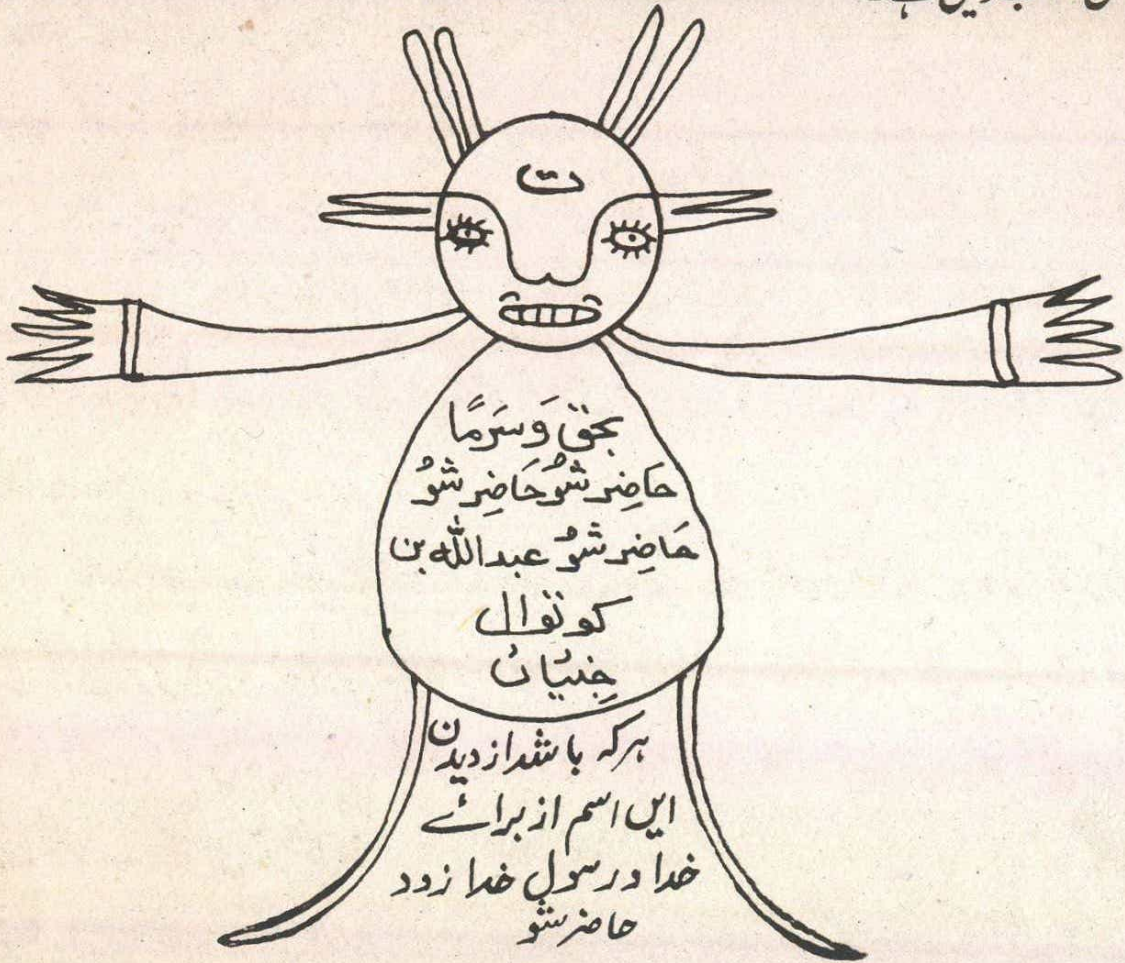 ت
بحق وَسَرمًا
حَاضِر شُوْ حَاضِر شُوْ
حَاضِر شُوْ عبداللّٰه بن
کوتوال
جِنیَّان
ہرکہ باشد از دیدن
ایں اسم از برائے
خدا و رسول خدا زود
حاضر شو